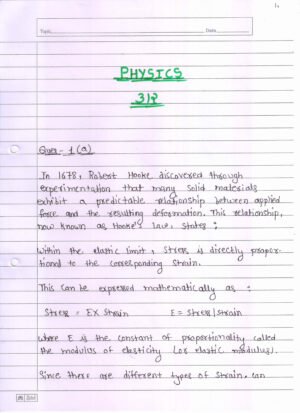 1.
Topic
Date
PHYSICS
312
Ques- 1 (a)
In 1678, Robert Hooke discovered through
experimentation that many solid materials
exhibit a predictable relationship between applied
force and the resulting deformation. This relationship,
now known as Hooke's law, states :
Within the elastic limit, stress is directly propor-
tional to the corresponding strain.
This can be expressed mathematically as :
Stress = EX Strain E = Stress/strain
where E is the constant of proportionality called
the modulus of elasticity (or elastic modulus).
Since there are different types of strain, can